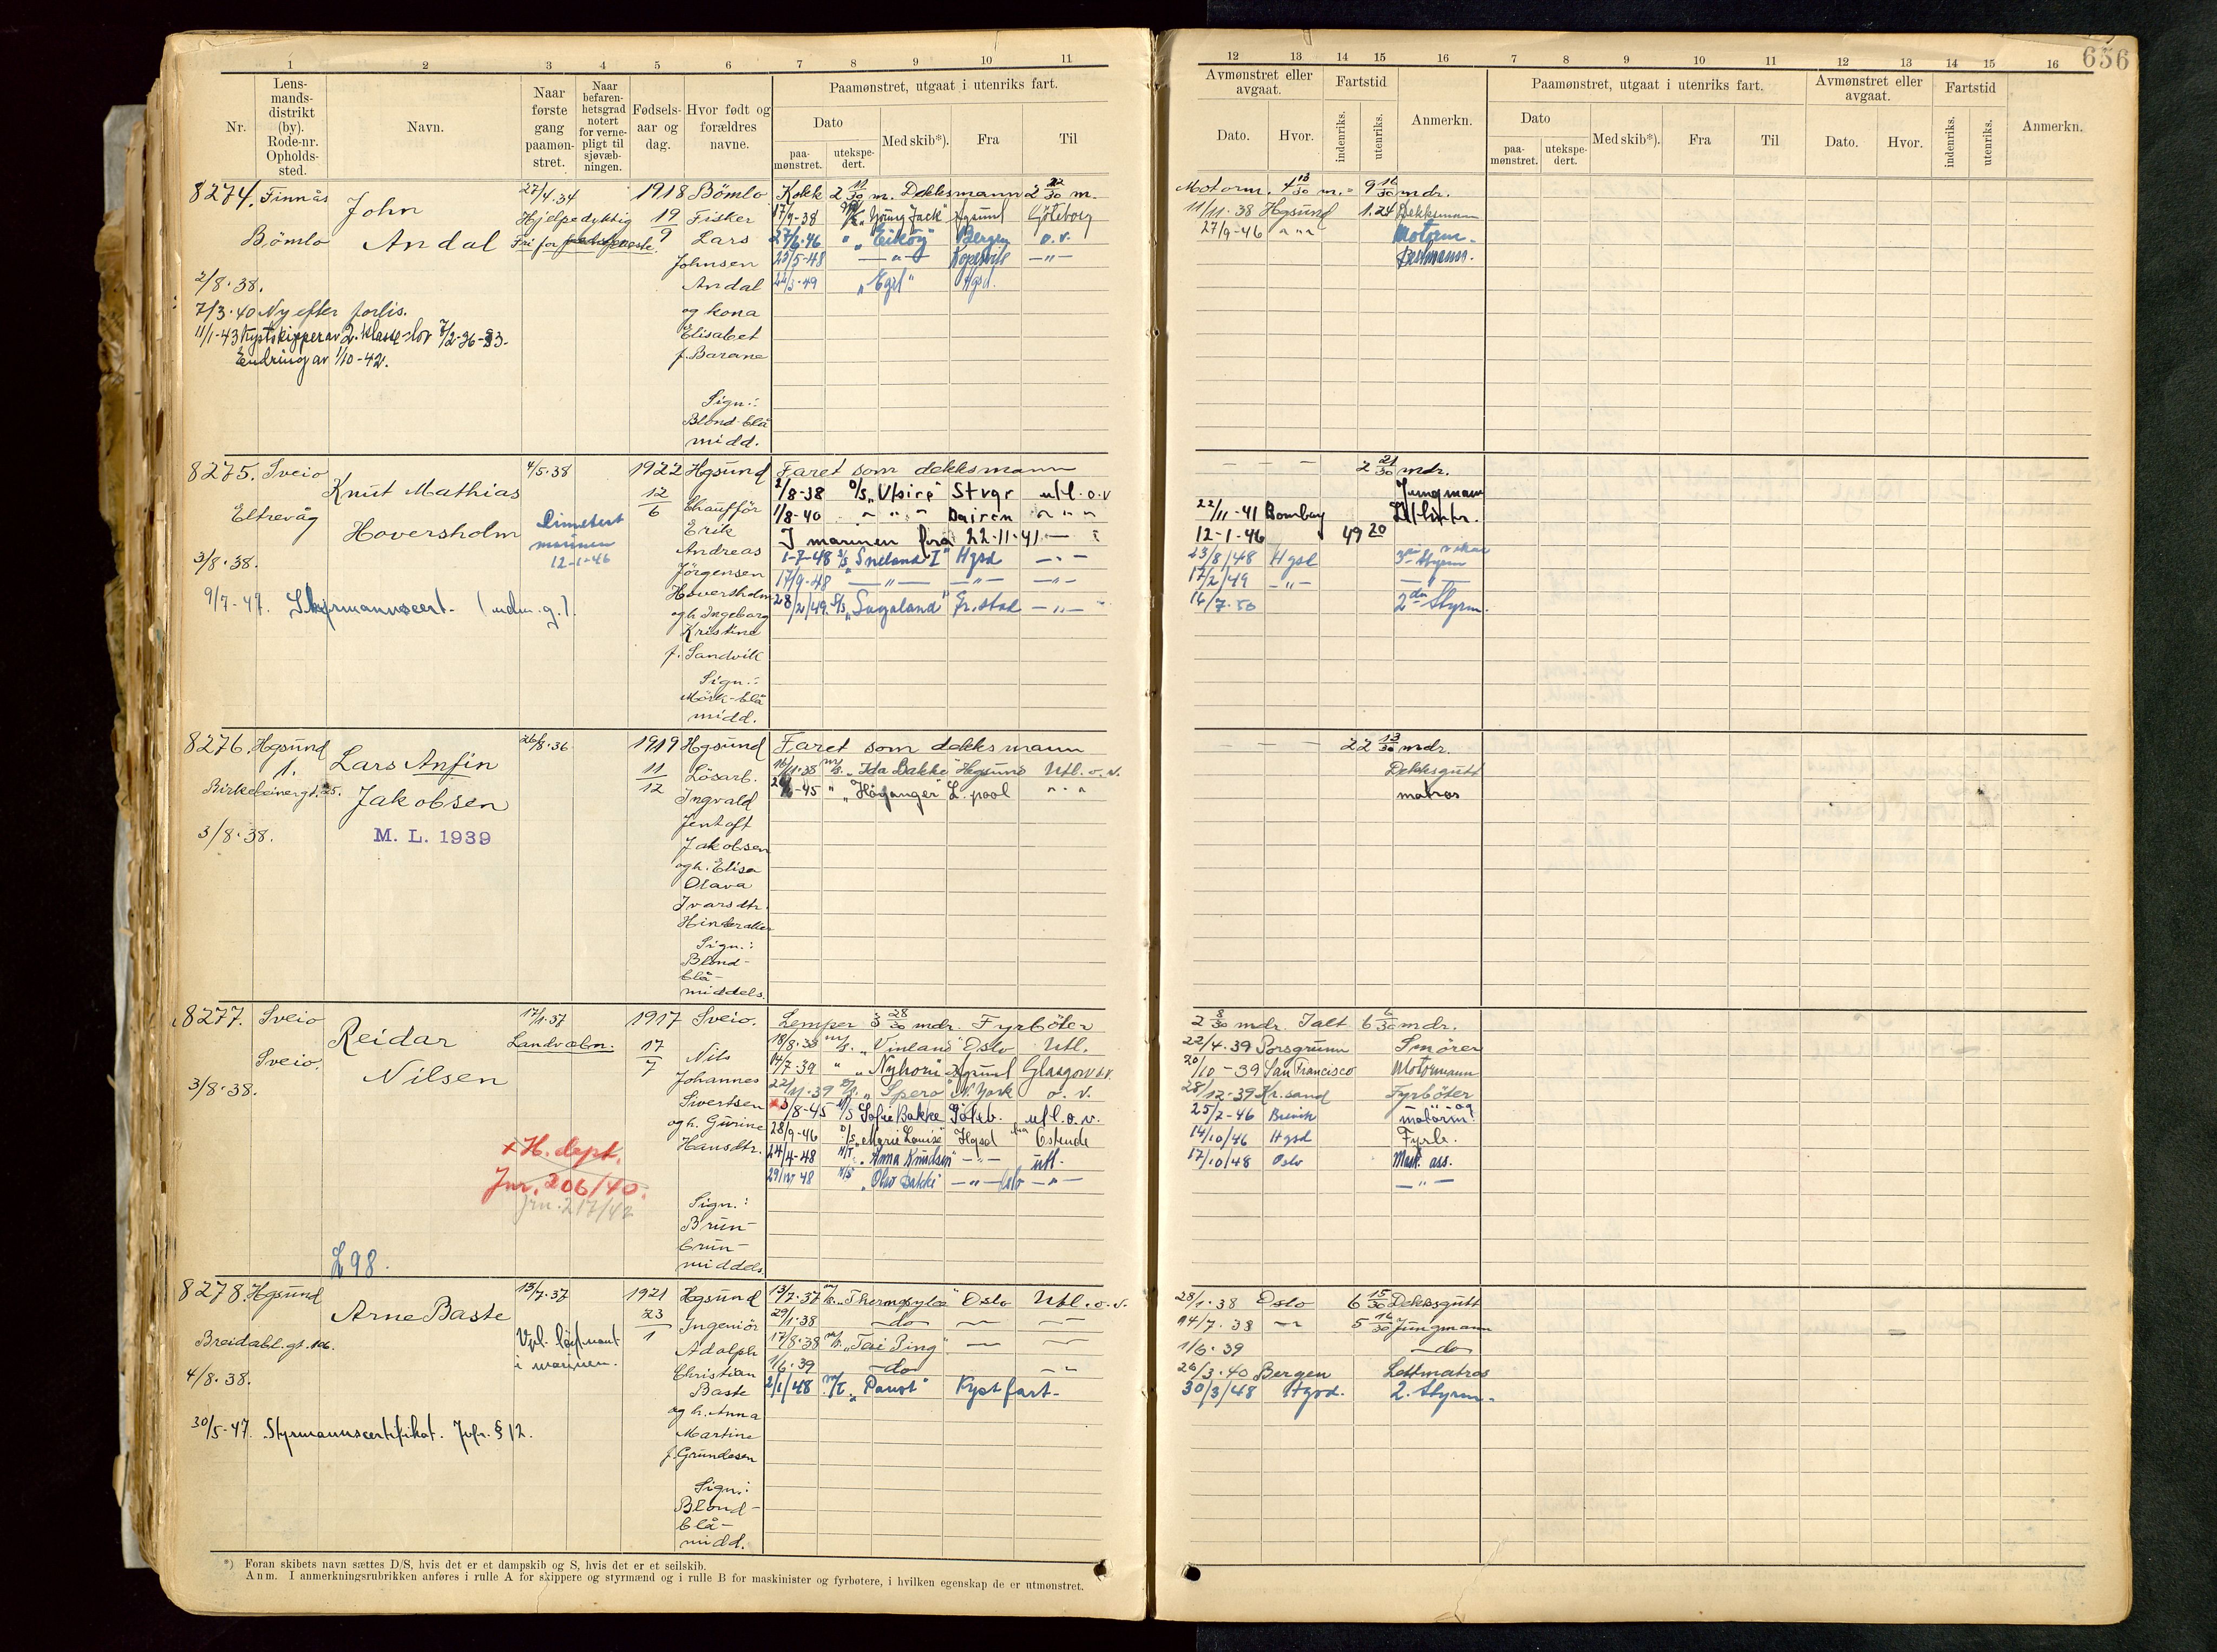 656
1 2 3 4 5 6 7 8 9 10 11
12 13 14 15 16 7 8 9 10 11 12 13 14 15 16
Nr.
Lens-
mands-
distrikt
(by).
Rode-nr.
Opholds-
sted.
Navn.
Naar
første
gang
paamøn-
stret.
Naar
befaren-
hetsgrad
notert
for verne-
pligt til
sjøvæb-
ningen.
Fødsels-
aar og
dag.
Hvor født og
forældres
navne.
Paamønstret, utgaat i utenriks fart.
Dato
paa-
mønstret.
utekspe-
dert.
Med skib*).
Fra
Til
Avmønstret eller
avgaat.
Dato.
Hvor.
Fartstid
indenriks.
utenriks.
Anmerkn.
Paamønstret, utgaat i utenriks fart.
Dato
paa-
mønstret.
utekspe-
dert.
Med skib*).
Fra
Til
Avmønstret eller
avgaat.
Dato.
Hvor.
Fartstid
indenriks.
utenriks.
Anmerkn.
8274. Finnås
Bömlo
John
Andal
27/4.34
Hjelpedyktig
Fri for
1918
19/9
Bömlo
Fisker
Lars
Johnsen
Andal
og kona
Elisabet
f. Barane
Sign.:
Blond-blå
midd.
2/8.38.
7/3.40 Ny efter forlis.
11/1-43 Kystskipper av 2. klasse lov 7/2-36-§3.
Endring av 1/10-42.
Kokk 2 11/30 m. Dekksmann 2 22/30 m.
17/9-38 "Young Jack" Hgsund Göteborg
27/6.46 " "Eiköy" Bergen o.v.
25/5-48 — " — Kopervik — " —
22/3-49 "Egil" Hgsd.
Motorm. 4 13/30 m. = 9 16/30 mdr.
11/11.38 Hgsund 1.24 Dekksmann
27/9-46 Motorm.
Bestmann.
8275. Sveio
Eltrevåg
Knut Mathias
Hoversholm
4/5.38
Dimittert
marinen
12-1-46
1922
12/6
Hgsund
Chaufför
Erik
Andreas
Jörgensen
Hoversholm
og h. Ingeborg
Kristine
f. Sandvik
Sign.:
Mörk-blå
midd.
3/8.38.
9/7-47. Styrmannscert. (uten g.).
Faret som dekksmann
2/8-38 D/S "Utsire" Stvgr utl. o.v
1/8-40 " " Dairen " "
I marinen fra 22-11-41 —
1-7-48 S/S "Sneland I" Hgsd — " —
17/9-48 — " — — " — — " —
28/2/49. S/S "Sagaland" Fr.stad — " —
— — — 2 21/30 mdr.
Jungmann
22/11-41 Bombay L/Matr.
12-1-46 49 20
23/8/48 Hgsd 3die Styrm vikar
17/2/49 — " — — " —
16/7.50 2den Styrm.
8276. Hgsund
1.
Birkebeinergt. 25.
Lars Anfin
Jakobsen
M. L. 1939
26/8.36
1919
11/12
Hgsund
Lösarb.
Ingvald
Jentoft
Jakobsen
og h. Elisa
Olava
Ivarsdtr.
Hinderaker
Sign.:
Blond-
blå-
middels.
3/8.38.
Faret som dekksmann
16/11.38 m/s. "Ida Bakke" Hgsund Utl. o. v.
-45 " "Höyanger" L.pool " "
— — — 22 13/30 mdr.
Dekksgutt
matros
8277. Sveio
Sveio.
Reidar
Nilsen
17/1.37
Landvebn.
1917
17/7
Sveio.
Nils
Johannes
Sivertsen
og h. Gurine
Hansdtr.
Sign.:
Brun-
brun-
middels.
3/8.38.
+ H. dept.
Jnr. 206/40.
Jrn. 217/42
L98.
Lemper 3 28/30 mdr. Fyrböter
18/8.38 m/s. "Vinland" Oslo Utl.
14/7.39 " "Nyhorn" Hgsund Glasgow o.v.
22/11.39 D/S. "Spero" N. York o. v.
x 3/8-45 M/S Sofie Bakke Göteb. utl. o.v.
28/9-46 D/S "Marie Louise" Hgsd fra Ostende
24/4-48 M/T. "Anna Knudsen" — " — utl.
29/12/48 M/S "Olav Bakke" — " — Oslo — " —
2 8/30 mdr. Ialt 6 6/30 mdr.
22/4.39 Porsgrunn Smörer
20/10-39 San Francisco Motormann
28/12.39 Kr.sand Fyrböter
25/2-46 Brevik motorm.
14/10/46 Hgsd Fyrb.
17/10/48 Oslo Mask. ass.
— " —
8278. Hgsund
Breidabl.gt. 106.
Arne Baste
13/7.37
Vpl. löytnant
i marinen.
1921
23/1
Hgsund
Ingeniör
Adolph
Christian
Baste
og h. Anna
Martine
f. Grundesen
Sign.:
Blond-
blå-
midd.
4/8.38.
30/5-47. Styrmannscertifikat. Jvfr. § 12.
13/7.37 m/s. "Thermopylæ" Oslo Utl. o. v.
29/1.38 — do — — —
17/8.38 m/s. "Tai Ping" — —
1/6.39 — do — — " —
2/1/48 m/T. "Panot" Kystfart-
28/1.38 Oslo 6 15/30 Dekksgutt
14/7.38 — " — 5 16/30 Jungmann
1/6.39 — do —
26/3.40 Bergen Lettmatros
30/3/48 Hgsd. 2. Styrm.
*) Foran skibets navn sættes D/S, hvis det er et dampskib og S, hvis det er et seilskib.
Anm. I anmerkningsrubrikken anføres i rulle A for skippere og styrmænd og i rulle B for maskinister og fyrbøtere, i hvilken egenskap de er utmønstret.